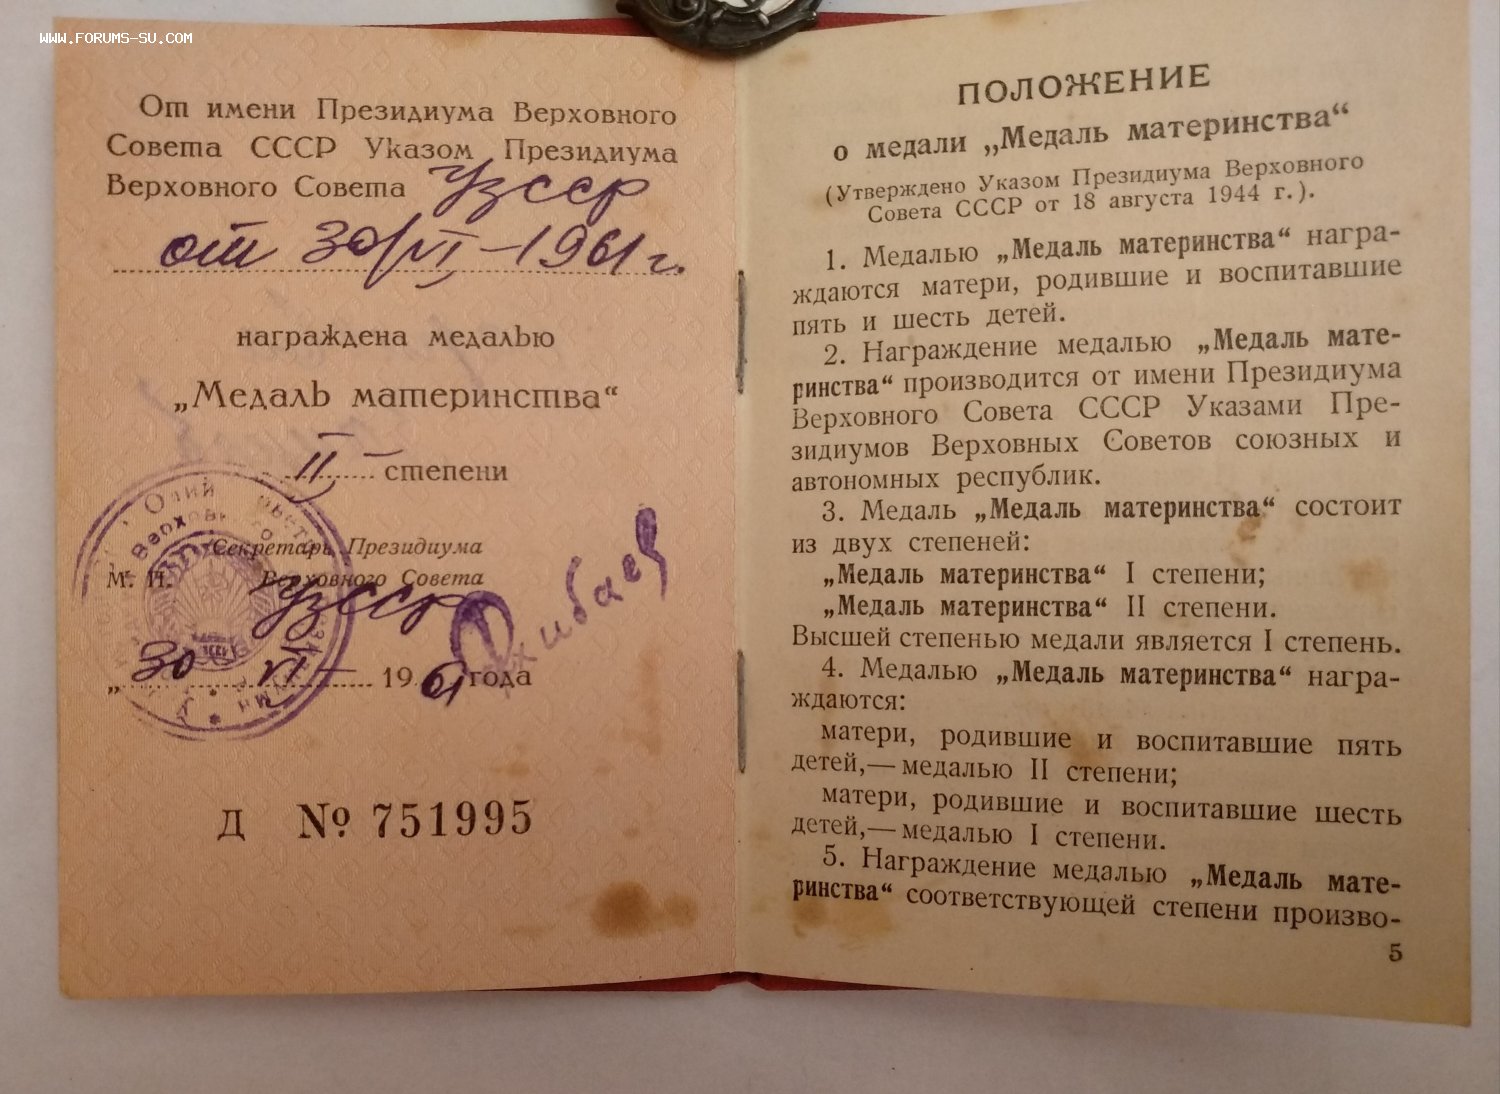 WWW.FORUMS-SU.COM
От имени Президиума Верховного
Совета СССР Указом Президиума
Верховного Совета УзССР
от 30/VI-1961 г.
награждена медалью
„Медаль материнства“
II степени
Секретарь Президиума
М. П. Верховного Совета
УзССР
„30 VI 1961 года
Д № 751995
ПОЛОЖЕНИЕ
о медали „Медаль материнства“
(Утверждено Указом Президиума Верховного
Совета СССР от 18 августа 1944 г.).
1. Медалью „Медаль материнства“ награ-
ждаются матери, родившие и воспитавшие
пять и шесть детей.
2. Награждение медалью „Медаль мате-
ринства“ производится от имени Президиума
Верховного Совета СССР Указами Пре-
зидиумов Верховных Советов союзных и
автономных республик.
3. Медаль „Медаль материнства“ состоит
из двух степеней:
„Медаль материнства“ I степени;
„Медаль материнства“ II степени.
Высшей степенью медали является I степень.
4. Медалью „Медаль материнства“ награ-
ждаются:
матери, родившие и воспитавшие пять
детей,— медалью II степени;
матери, родившие и воспитавшие шесть
детей,— медалью I степени.
5. Награждение медалью „Медаль мате-
ринства“ соответствующей степени произво-
5